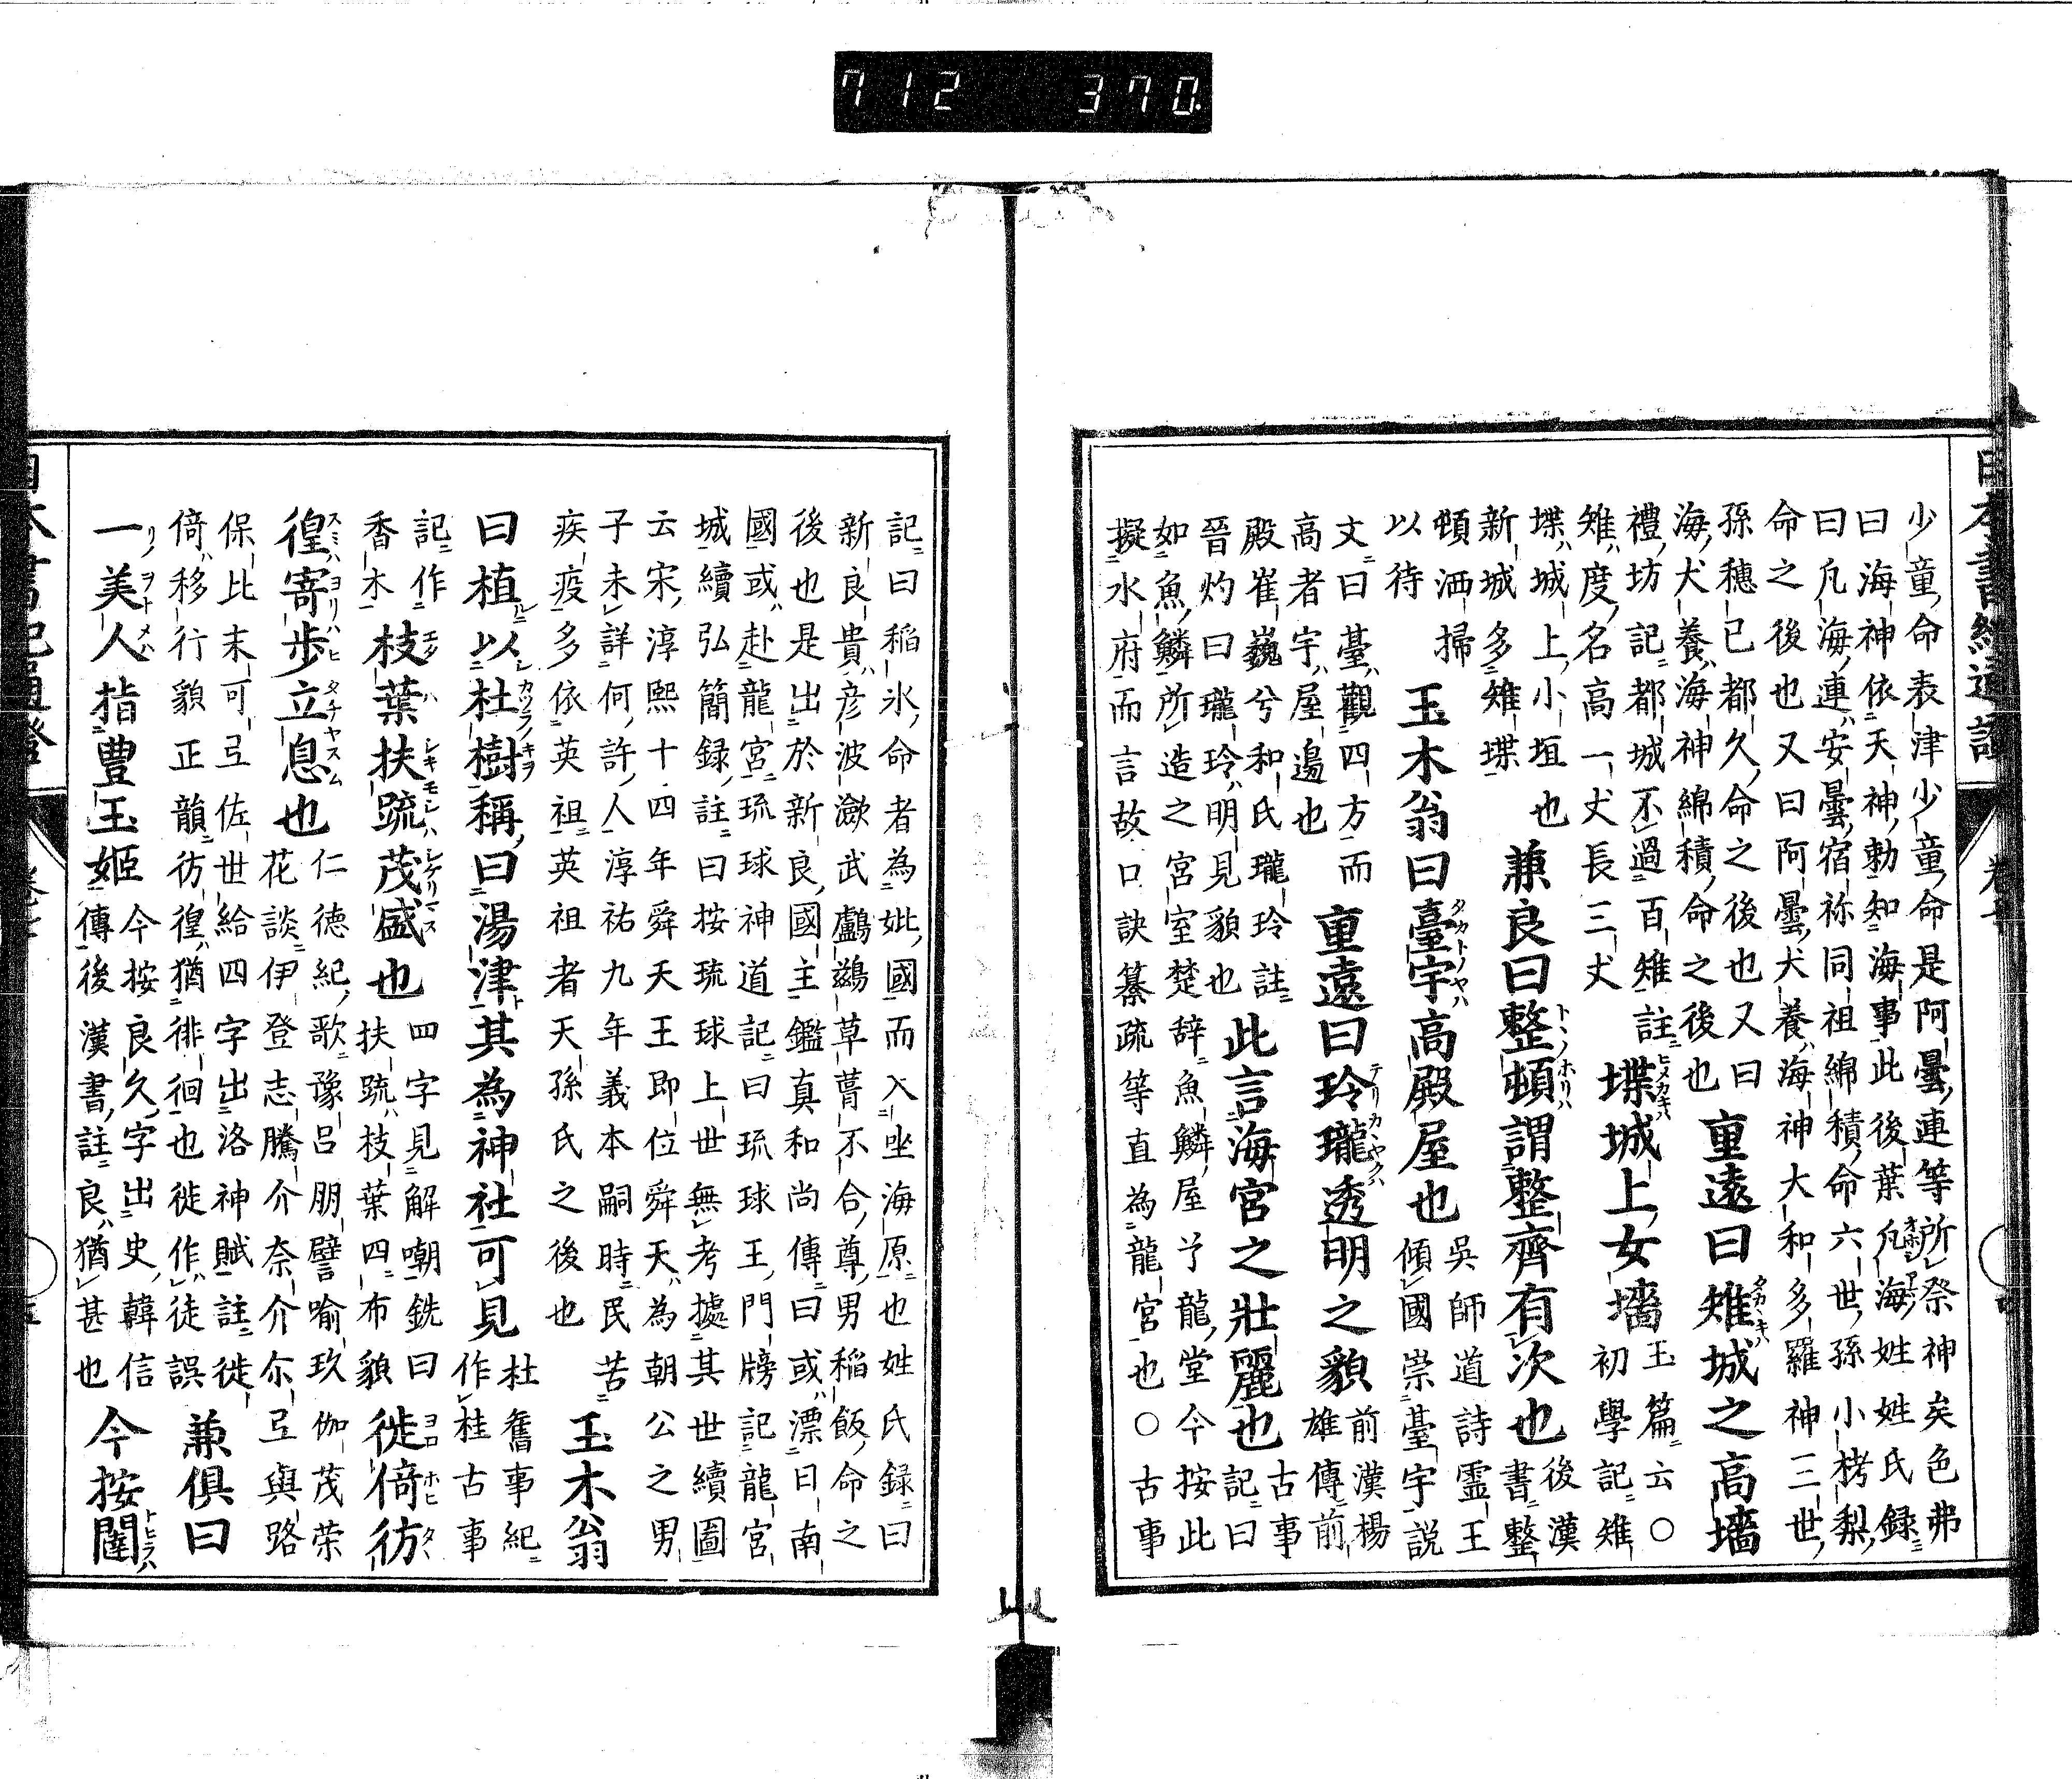 712 370.
少童命表津少童命是阿曇連等所祭神矣色弗
曰海神依天神勅知海事此後葉凡海姓姓氏録
曰凡海連安曇宿祢同祖綿積命六世孫小栲梨
命之後也又曰阿曇犬養海神大和多羅神三世
孫穗已都久命之後也又曰
海犬養海神綿積命之後也
重遠曰雉城之高墻
禮坊記都城不過百雉註
雉度名高一丈長三丈
堞城上女墻
玉篇云○
初學記雉
堞城上小垣也
新城多雉堞
兼良曰整頓謂整齊有次也
後漢
書整
頓洒掃
以待
玉木翁曰臺宇高殿屋也
吳師道詩霊王
傾國崇臺宇説
文曰臺觀四方而
高者宇屋邊也
重遠曰玲瓏透明之貌
前漢楊
雄傳前
殿崔巍兮和氏瓏玲註
晉灼曰瓏玲明見貌也
此言海宮之壯麗也
古事
記曰
如魚鱗所造之宮室楚辞魚鱗屋兮龍堂今按此
擬水府而言故口訣纂疏等直為龍宮也○古事
記曰稲氷命者為妣國而入坐海原也姓氏録曰
新良貴彦波瀲武鸕鷀草葺不合尊男稲飯命之
後也是出於新良國主鑑真和尚傳曰或漂日南
國或赴龍宮琉球神道記曰琉球王門牓記龍宮
城續弘簡録註曰按琉球上世無考據其世續圖
云宋淳熙十四年舜天王即位舜天為朝公之男
子未詳何許人淳祐九年義本嗣時民苦
疾疫多依英祖英祖者天孫氏之後也
玉木翁
曰植以杜樹稱曰湯津其為神社可見
杜舊事紀
作桂古事
記作
香木
枝葉扶疏茂盛也
四字見解嘲銑曰
扶疏枝葉四布貌
徙倚彷
徨寄歩立息也
仁德紀歌豫呂朋譬喻玖伽茂荣
花談伊登志騰介奈介尓弖與路
保比末可弖佐世給四字出洛神賦註徙
倚移行貌正韻彷徨猶徘徊也徙作徒誤
兼俱曰
一美人指豊玉姫
今按良久字出史韓信
傳後漢書註良猶甚也
今按闔